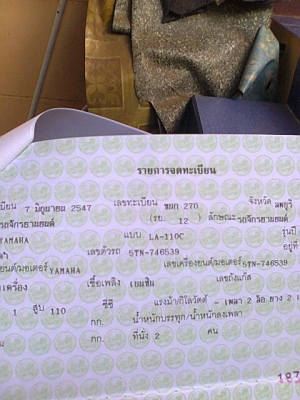 รายการจดทะเบียน
7 มิถุนายน 2547 เลขทะเบียน ขผก 270 จังหวัด ลพบุรี
รถจักรยานยนต์ (รย. 12 ) ลักษณะ รถจักรยานยนต์
YAMAHA แบบ LA-110C รุ่นปี
เลขตัวรถ 5TN-746539 อยู่ที่
ยนต์/มอเตอร์ YAMAHA เลขเครื่องยนต์/มอเตอร์ 5TN-746539
เครื่อง เชื้อเพลิง เบนซิน เลขถังแก๊ส
1 สูบ 110 ซีซี แรงม้า/กิโลวัตต์ - เพลา 2 ล้อ ยาง 2
กก. น้ำหนักบรรทุก/น้ำหนักลงเพลา
กก. ที่นั่ง 2 คน
183